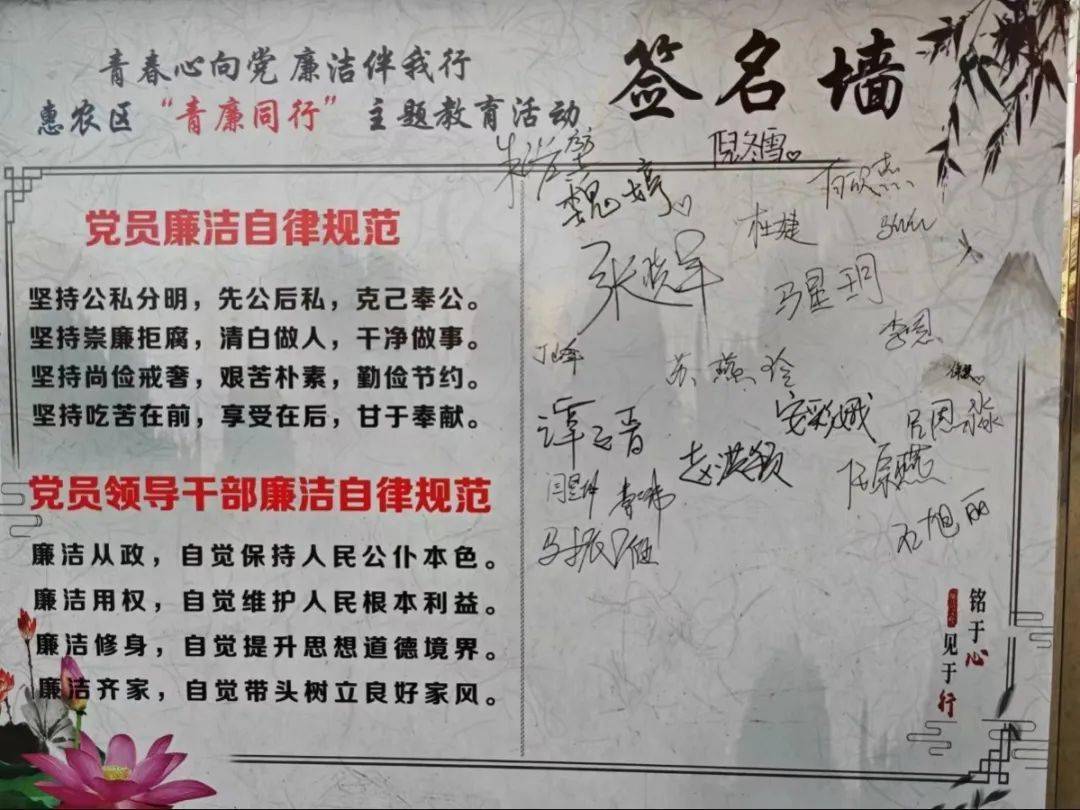 青春心向党 廉洁伴我行
惠农区“青廉同行”主题教育活动
签名墙
党员廉洁自律规范
坚持公私分明，先公后私，克己奉公。
坚持崇廉拒腐，清白做人，干净做事。
坚持尚俭戒奢，艰苦朴素，勤俭节约。
坚持吃苦在前，享受在后，甘于奉献。
党员领导干部廉洁自律规范
廉洁从政，自觉保持人民公仆本色。
廉洁用权，自觉维护人民根本利益。
廉洁修身，自觉提升思想道德境界。
廉洁齐家，自觉带头树立良好家风。
倪冬雪
魏婷
杜婕
张晓军
马星玥
李恩
苏燕玲
谭云晋
安彩娥
吕恩淼
赵洪颖
石旭丽
铭于心
见于行